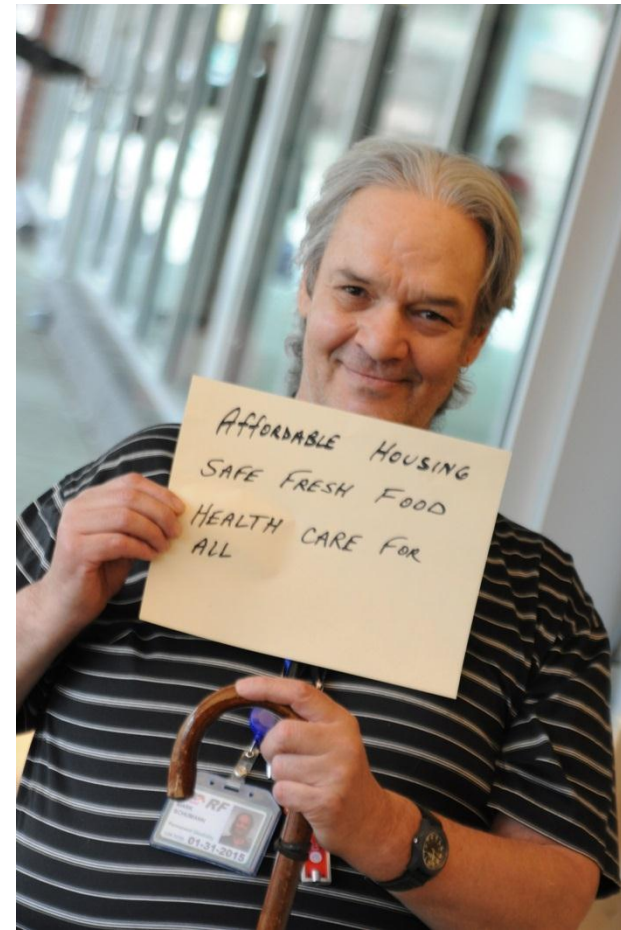 AFFORDABLE HOUSING
SAFE FRESH FOOD
HEALTH CARE FOR
ALL
RF
01-31-2015